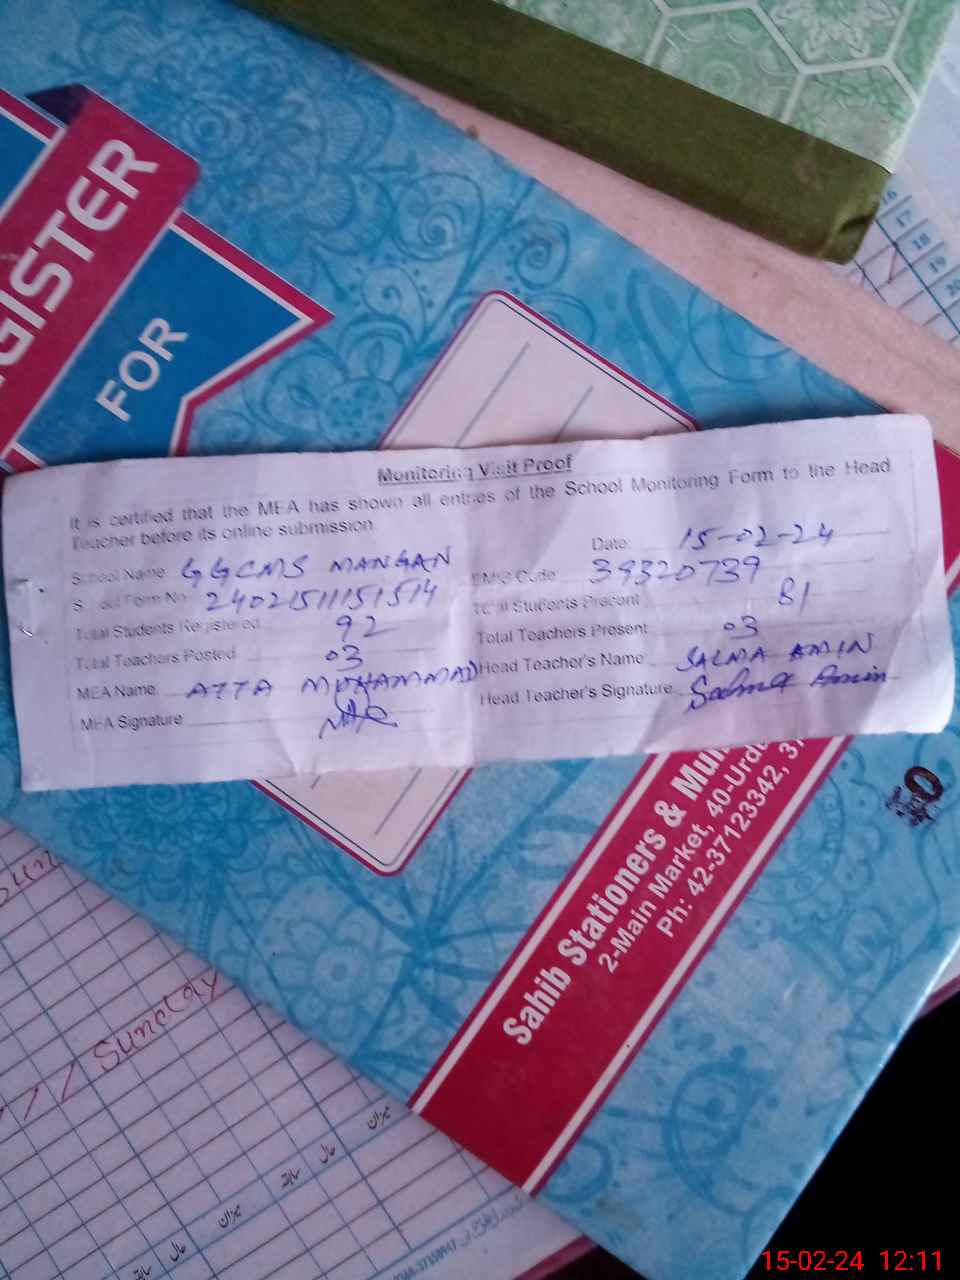 GISTER
FOR
16
17
18
19
20
Monitoring Visit Proof
It is certified that the MEA has shown all entries of the School Monitoring Form to the Head
Teacher before its online submission
Date: 15-02-24
School Name GGCMS MANGAN
EMIS Code 39320739
School Form No 2402151115 1514
Total Students Present 81
Total Students Registered 92
Total Teachers Present 03
Total Teachers Posted 03
Head Teacher's Name SALMA AMIN
MEA Name ATTA MUHAMMAD
Head Teacher's Signature Salma Amin
MEA Signature
Sahib Stationers & Mul
2-Main Market, 40-Urdu
Ph: 42-37123342, 37
Sunday
میزان
حال
سابقہ
میزان
حال
سابقہ
15-02-24 12:11